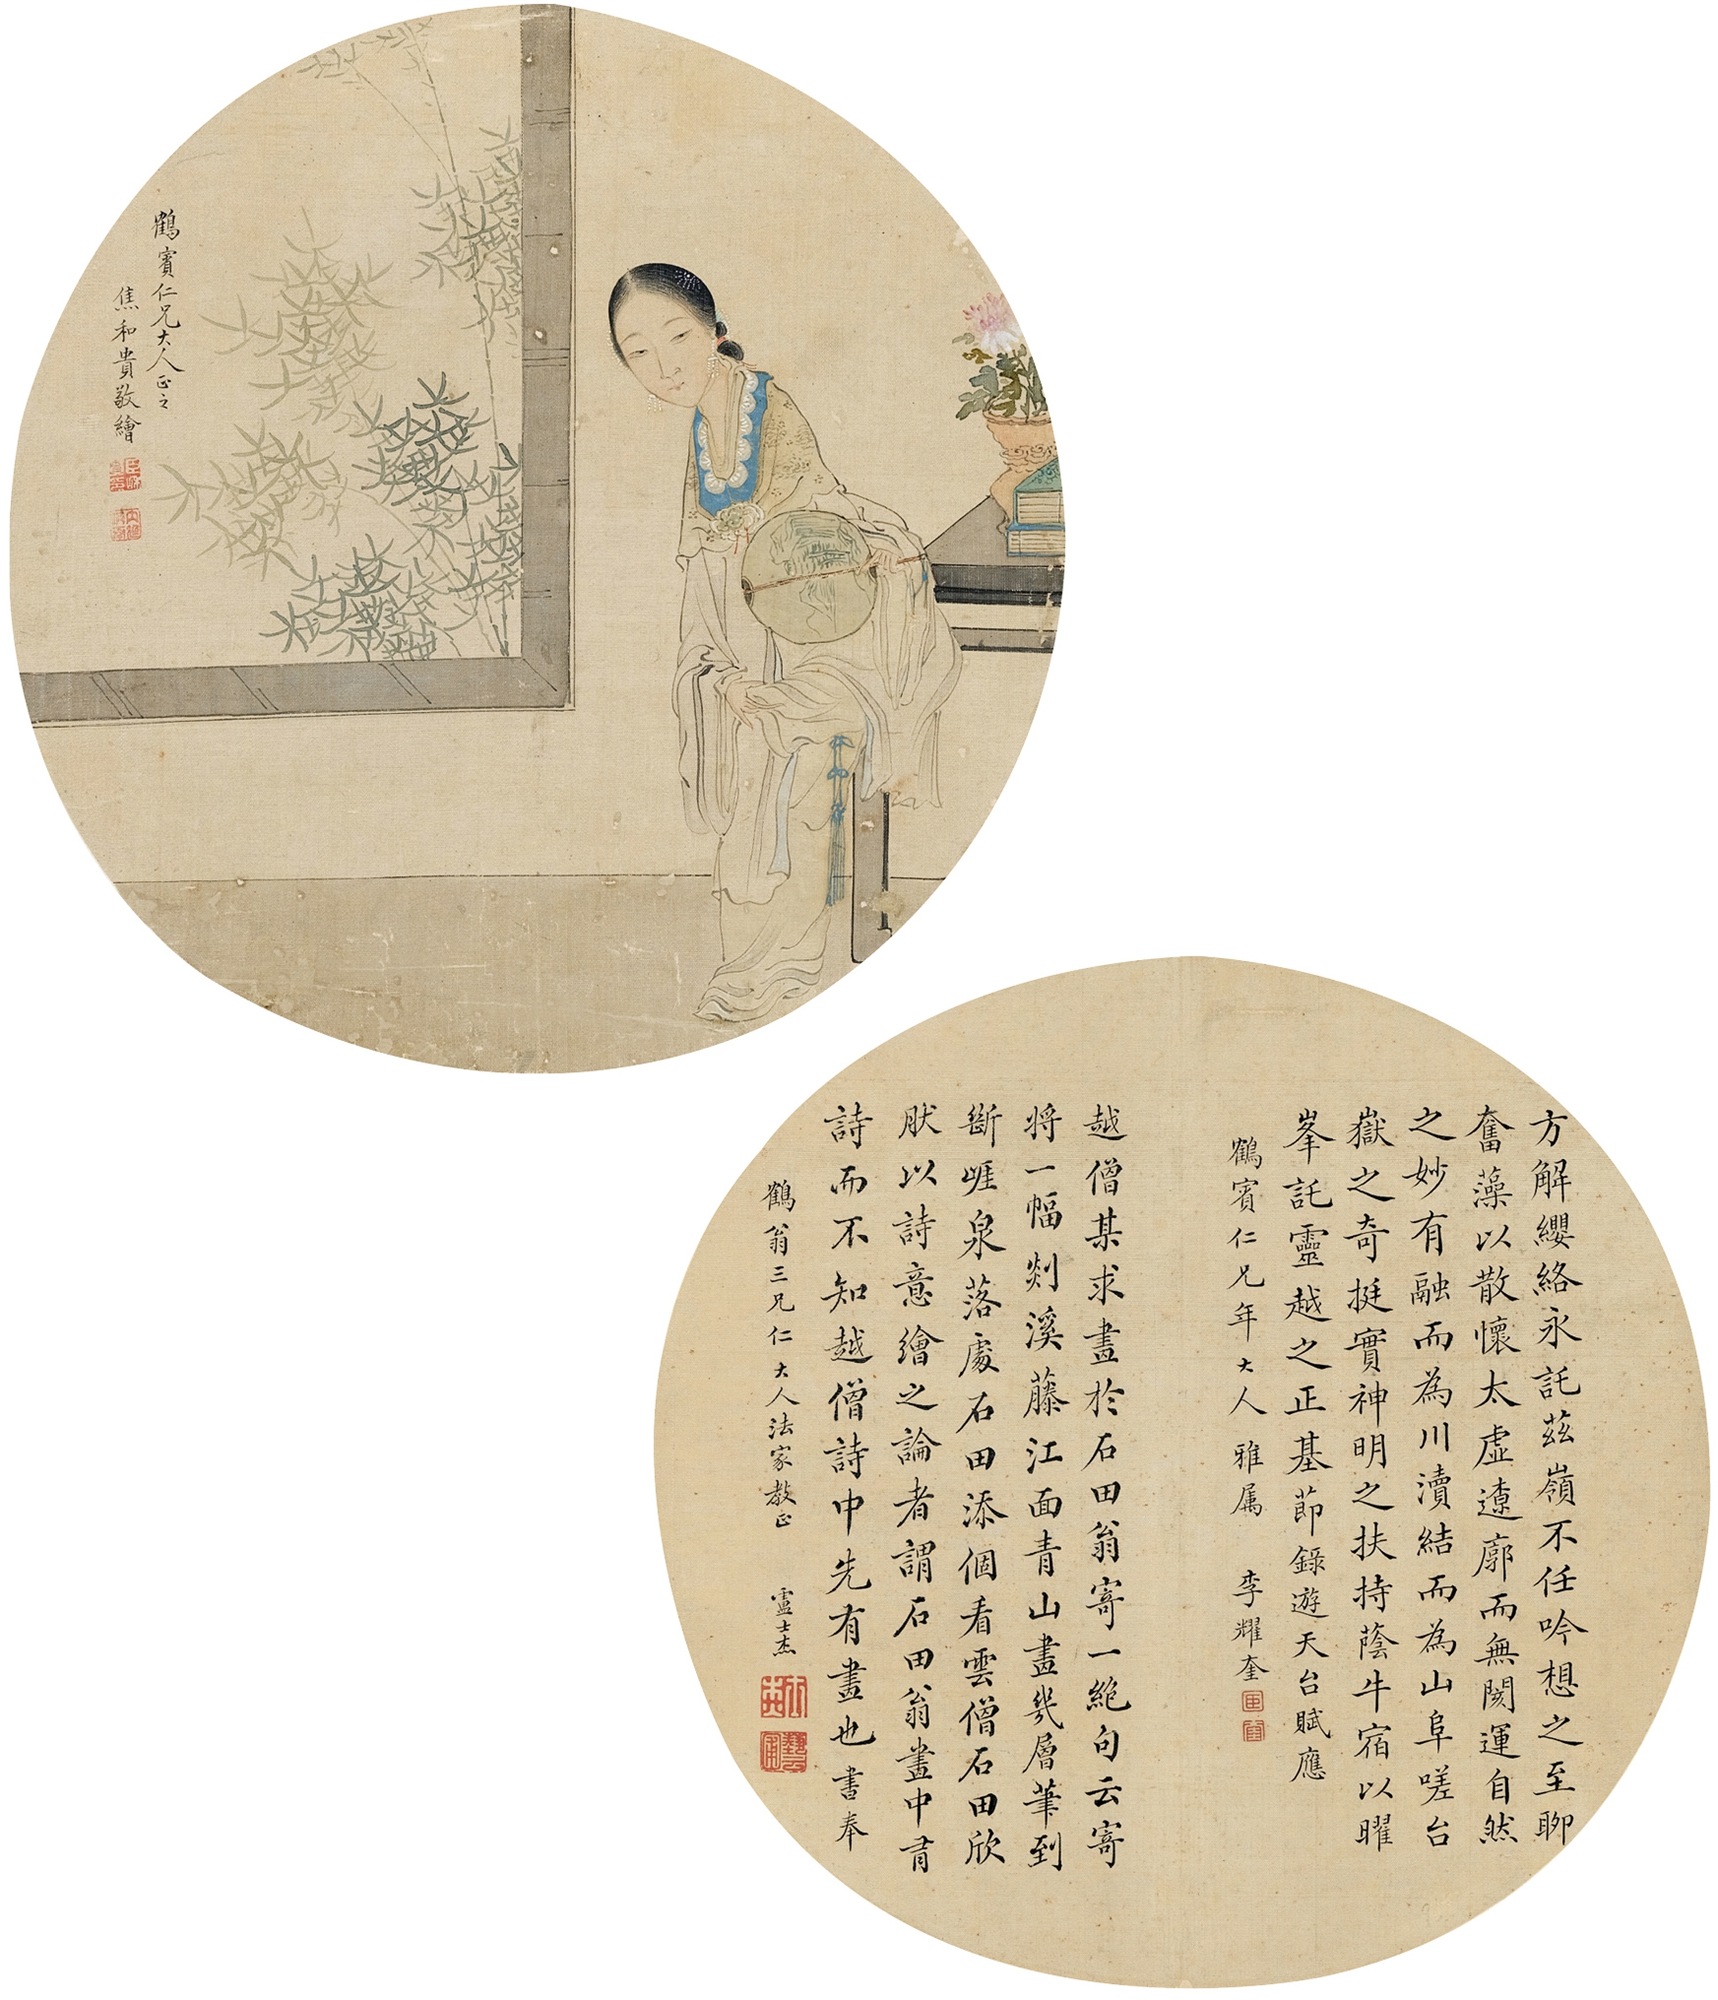 鶴賓仁兄大人正之
焦和貴敬繪
方解纓絡永託茲嶺不任吟想之至聊
奮藻以散懷太虛遼廓而無閡運自然
之妙有融而為川瀆結而為山阜嗟台
嶽之奇挺實神明之扶持蔭牛宿以曜
峯託靈越之正基節錄遊天台賦應
鶴賓仁兄年大人雅属 李耀奎
越僧某求畫於石田翁寄一絕句云寄
将一幅剡溪藤江面青山畫幾層筆到
斷崕泉落處石田添個看雲僧石田欣
肰以詩意繪之論者謂石田翁畫中有
詩而不知越僧詩中先有畫也書奉
鶴翁三兄仁大人法家教正 盧士杰